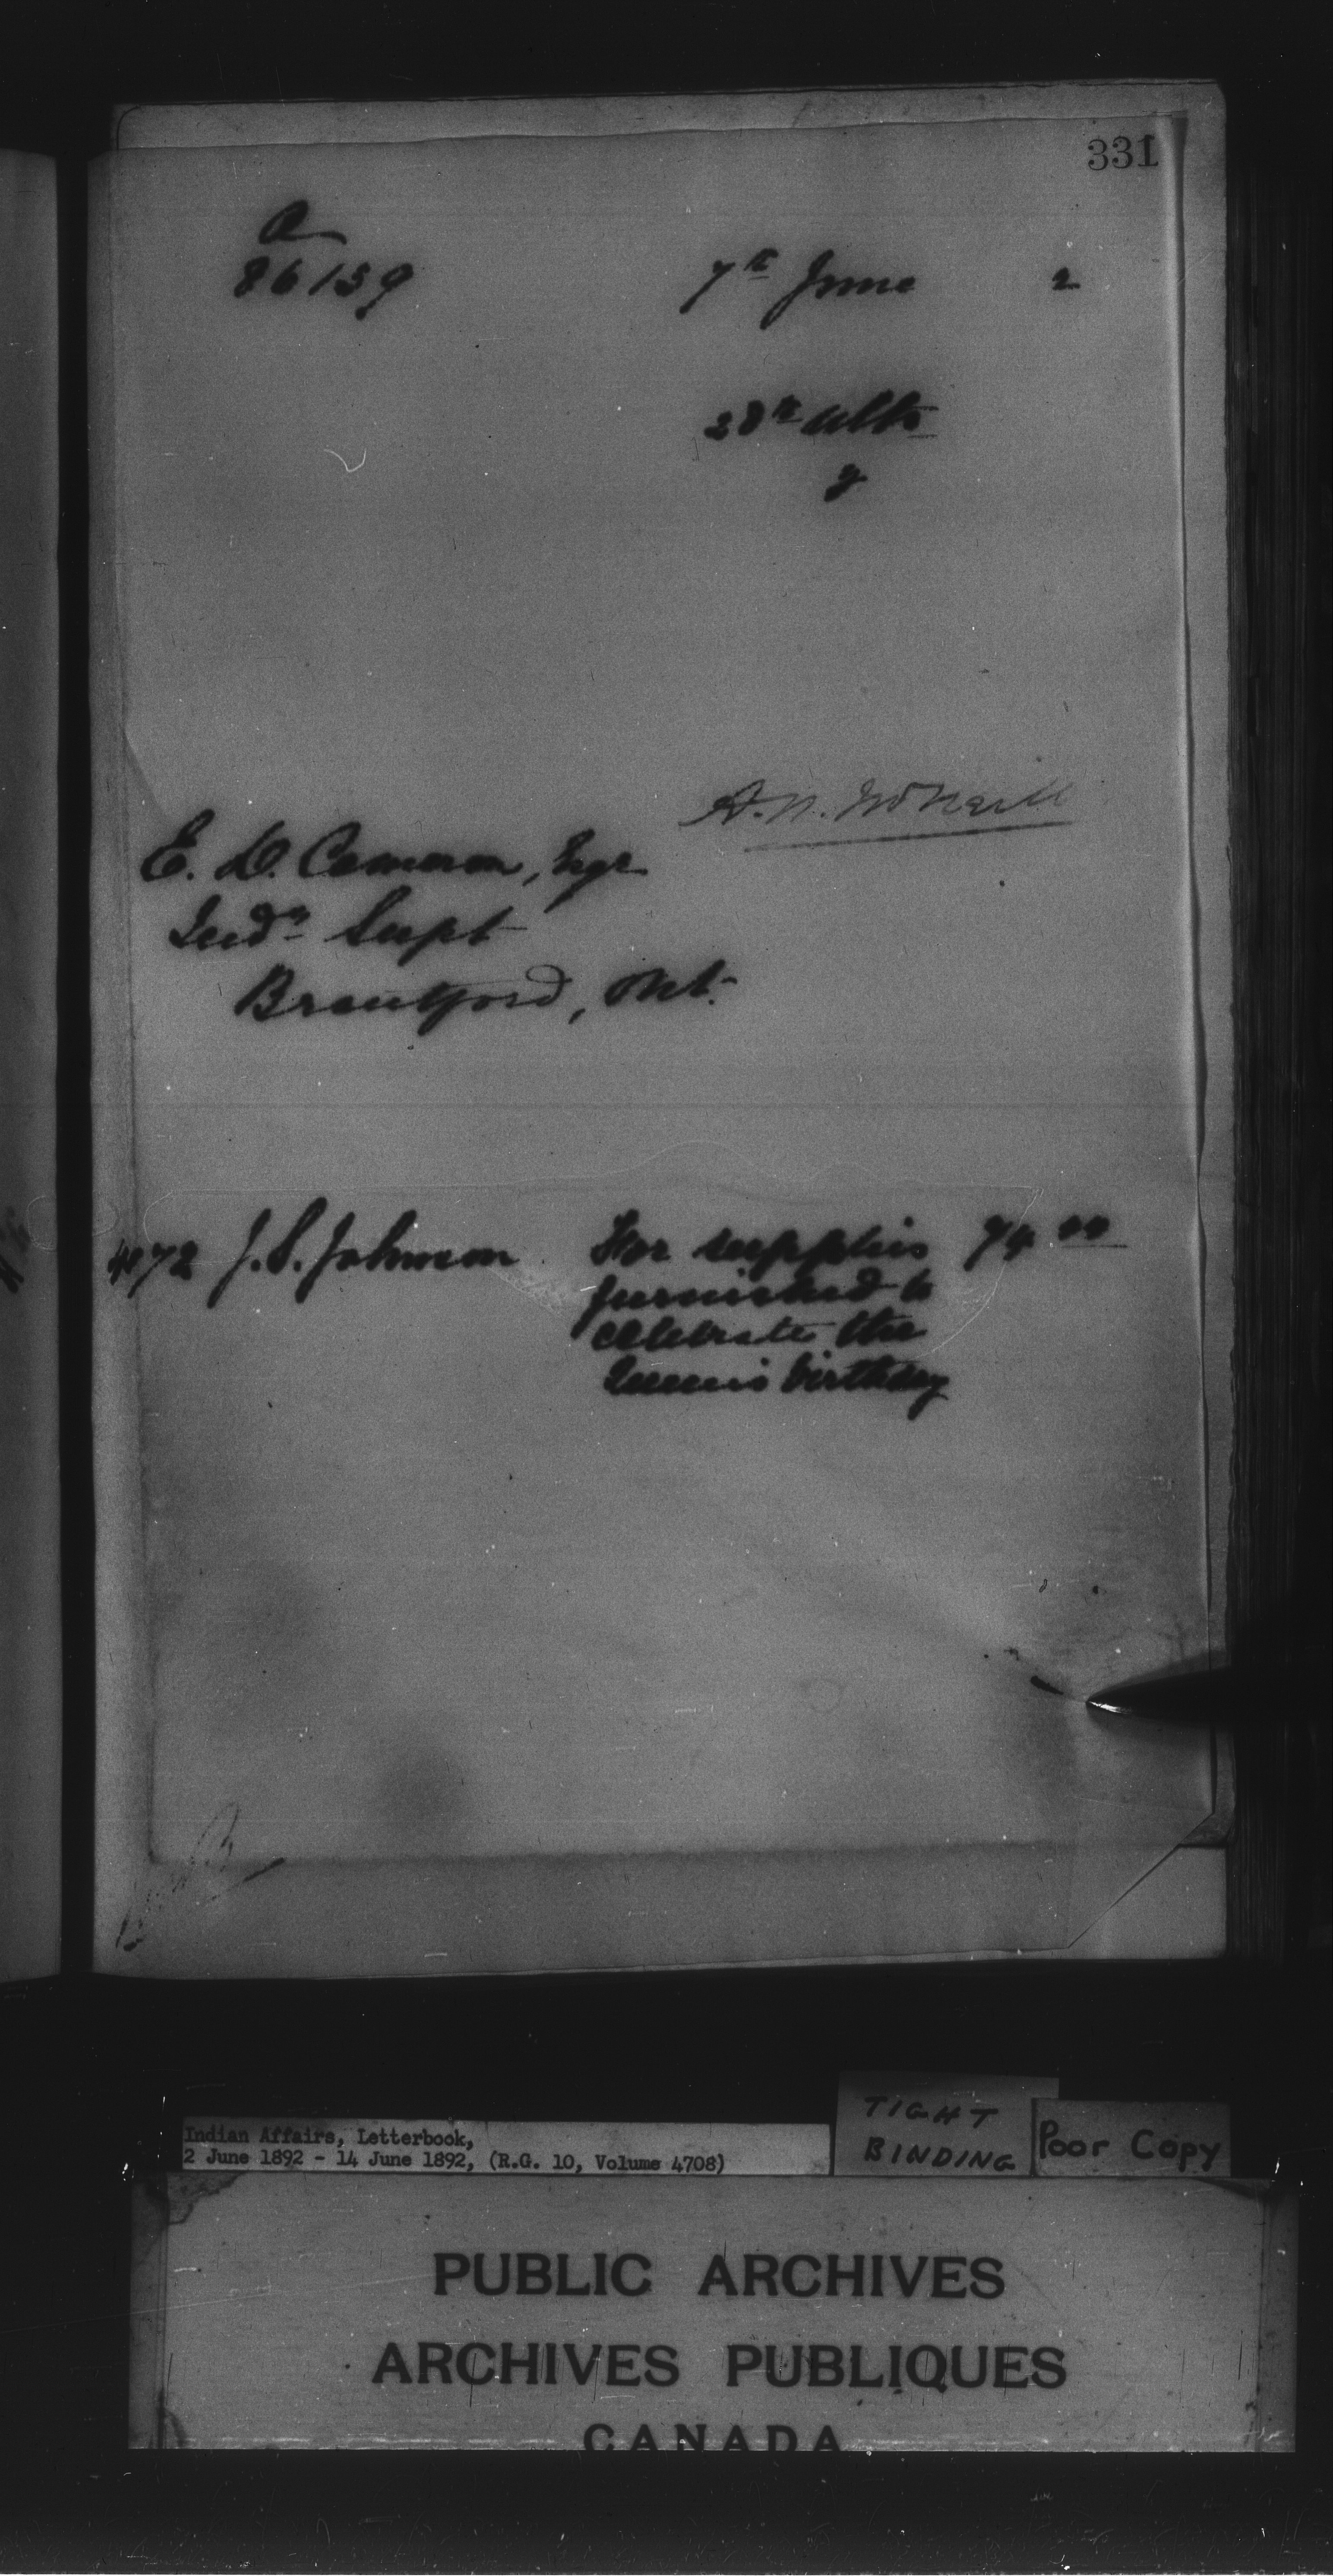 331
a
86159
7th June 2
28th Ulto
y
A. N. McNeill
E. D. Cameron, Esqr
Indn Supt
Brantford, Ont.
4072 J. S. Johnson For supplies 74 00
furnished to
celebrate the
Queen's birthday
Indian Affairs, Letterbook,
2 June 1892 - 14 June 1892, (R.G. 10, Volume 4708)
TIGHT
BINDING
Poor Copy
PUBLIC ARCHIVES
ARCHIVES PUBLIQUES
CANADA